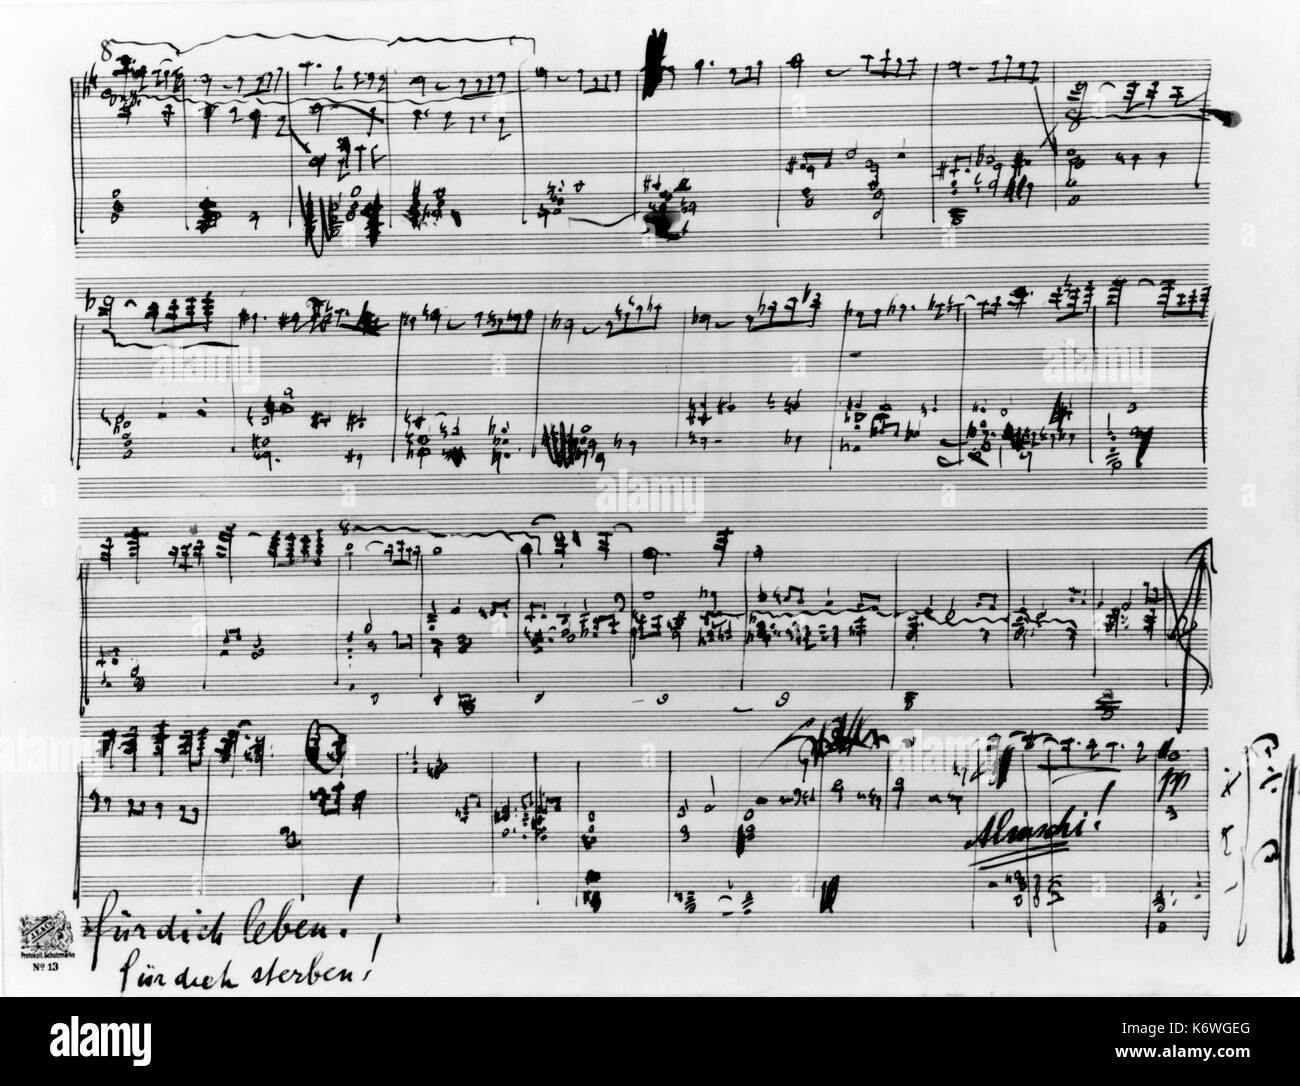 8
8
8
Almschi!
für dich leben!
für dich sterben!
J.E.&Co.
Protokoll. Schutzmarke
No 13
pp
alamy
alamy
alamy
alamy
alamy
a
a
a
a
alamy
Image ID: K6WGEG
www.alamy.com